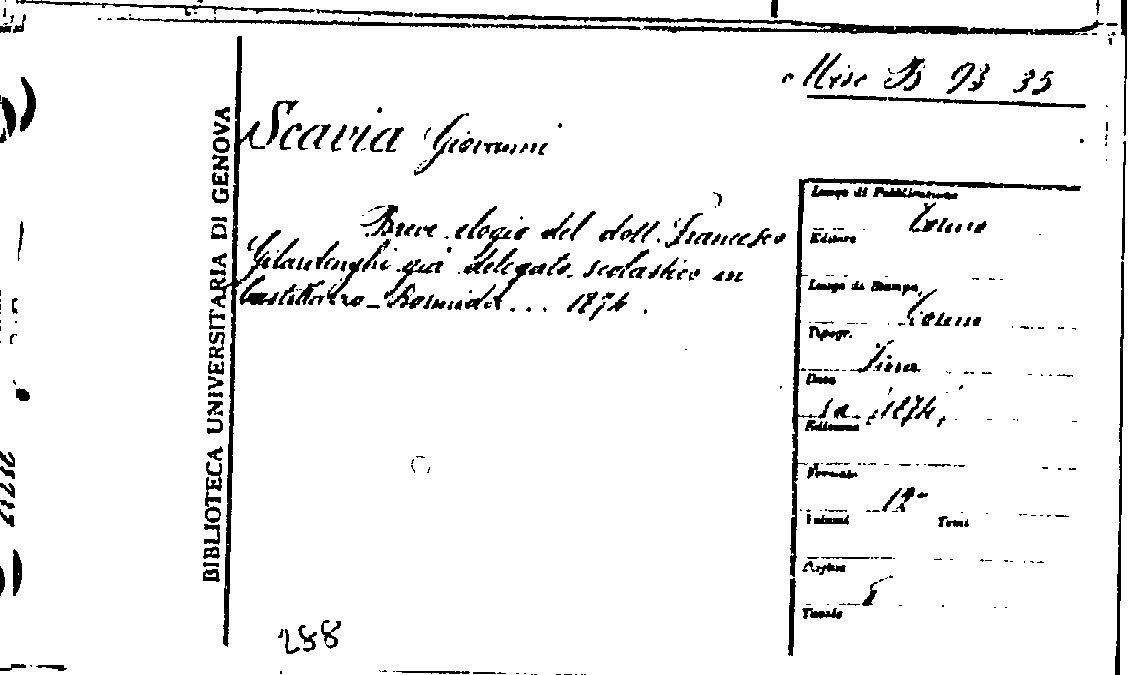 Misc B 93 35
BIBLIOTECA UNIVERSITARIA DI GENOVA
Scavia Giovanni
Breve elogio del dott. Francesco
già delegato scolastico in
1874.
Luogo di Pubblicazione
Torino
Editore
Luogo di Stampa
Torino
Tipogr.
Data
s.a. (1874)
Edizione
Formato
12°
Volumi Tomi
Pagine
Tavole
288